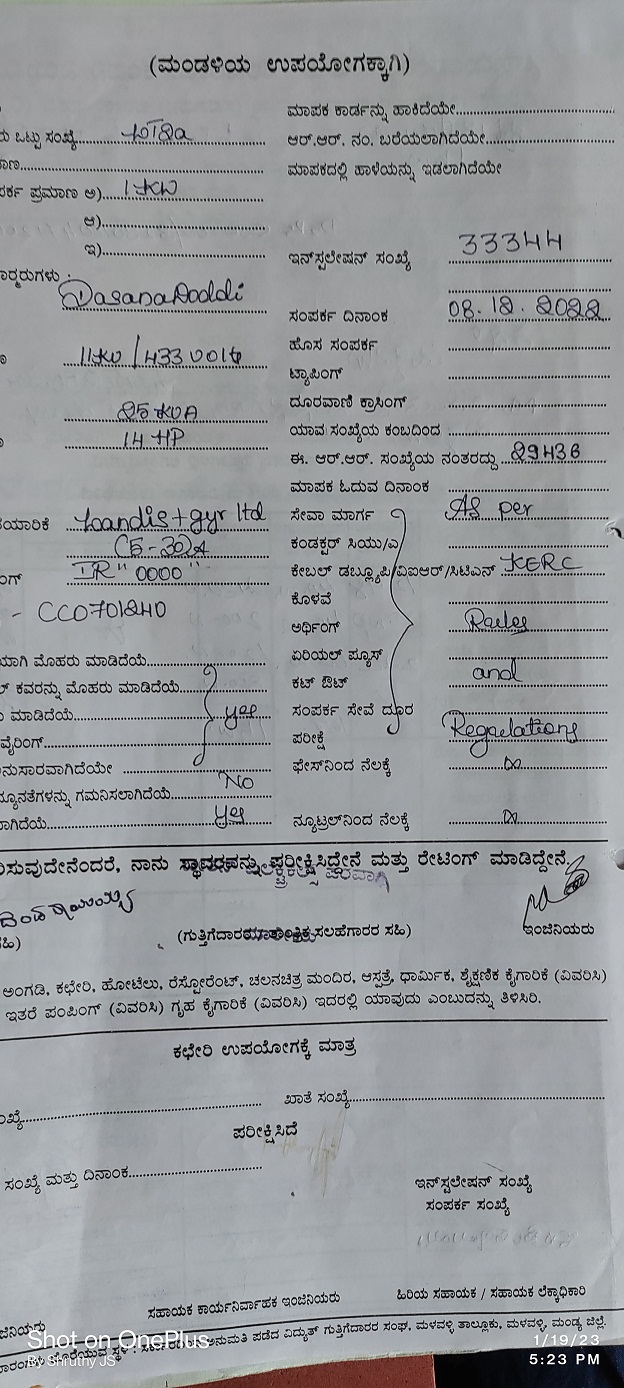 (ಮಂಡಳಿಯ ಉಪಯೋಗಕ್ಕಾಗಿ)
ಮಾಪಕ ಕಾರ್ಡನ್ನು ಹಾಕಿದೆಯೇ
ಒಟ್ಟು ಸಂಖ್ಯೆ
ಆರ್.ಆರ್. ನಂ. ಬರೆಯಲಾಗಿದೆಯೇ
ಮಾಪಕದಲ್ಲಿ ಹಾಳೆಯನ್ನು ಇಡಲಾಗಿದೆಯೇ
ಪ್ರಮಾಣ ಅ) 1 KW
ಆ)
ಇ)
ಇನ್‌ಸ್ಟಲೇಷನ್ ಸಂಖ್ಯೆ 33344
DasanaDoddi
ಸಂಪರ್ಕ ದಿನಾಂಕ 08.12.2022
ಹೊಸ ಸಂಪರ್ಕ
11KV/433 Volt
ಟ್ಯಾಪಿಂಗ್
ದೂರವಾಣಿ ಕ್ರಾಸಿಂಗ್
25 KVA
ಯಾವ ಸಂಖ್ಯೆಯ ಕಂಬದಿಂದ
14 HP
ಈ. ಆರ್.ಆರ್. ಸಂಖ್ಯೆಯ ನಂತರದ್ದು 29436
ಮಾಪಕ ಓದುವ ದಿನಾಂಕ
Landis+gyr ltd
ಸೇವಾ ಮಾರ್ಗ As per
(5-30)A
ಕಂಡಕ್ಟರ್ ಸಿಯು/ಎ
IR "0000"
ಕೇಬಲ್ ಡಬ್ಲ್ಯೂಪಿ/ವಿಐಆರ್/ಸಿಟಿಎನ್ KERC
ಕೊಳವೆ
- CC0701240
ಅರ್ಥಿಂಗ್ Rules
ಮೊಹರು ಮಾಡಿದೆಯೆ
ಏರಿಯಲ್ ಫ್ಯೂಸ್
ಕವರನ್ನು ಮೊಹರು ಮಾಡಿದೆಯೆ
ಕಟ್ ಔಟ್ and
ಮಾಡಿದೆಯೆ yes
ಸಂಪರ್ಕ ಸೇವೆ ದೂರ
ವೈರಿಂಗ್
ಪರೀಕ್ಷೆ Regulations
ಫೇಸ್‌ನಿಂದ ನೆಲಕ್ಕೆ ∞
ಗಮನಿಸಲಾಗಿದೆಯೆ No
yes
ನ್ಯೂಟ್ರಲ್‌ನಿಂದ ನೆಲಕ್ಕೆ ∞
ನಾನು ಸ್ಥಾವರವನ್ನು ಪರೀಕ್ಷಿಸಿದ್ದೇನೆ ಮತ್ತು ರೇಟಿಂಗ್ ಮಾಡಿದ್ದೇನೆ.
ಸಲಹೆಗಾರರ ಸಹಿ)
ಇಂಜಿನಿಯರು
ಅಂಗಡಿ, ಕಛೇರಿ, ಹೋಟೆಲು, ರೆಸ್ಟೋರೆಂಟ್, ಚಲನಚಿತ್ರ ಮಂದಿರ, ಆಸ್ಪತ್ರೆ, ಧಾರ್ಮಿಕ, ಶೈಕ್ಷಣಿಕ ಕೈಗಾರಿಕೆ (ವಿವರಿಸಿ)
ಇತರೆ ಪಂಪಿಂಗ್ (ವಿವರಿಸಿ) ಗೃಹ ಕೈಗಾರಿಕೆ (ವಿವರಿಸಿ) ಇದರಲ್ಲಿ ಯಾವುದು ಎಂಬುದನ್ನು ತಿಳಿಸಿರಿ.
ಕಛೇರಿ ಉಪಯೋಗಕ್ಕೆ ಮಾತ್ರ
ಖಾತೆ ಸಂಖ್ಯೆ
ಪರೀಕ್ಷಿಸಿದೆ
ಸಂಖ್ಯೆ ಮತ್ತು ದಿನಾಂಕ
ಇನ್‌ಸ್ಟಲೇಷನ್ ಸಂಖ್ಯೆ
ಸಂಪರ್ಕ ಸಂಖ್ಯೆ
ಸಹಾಯಕ ಕಾರ್ಯನಿರ್ವಾಹಕ ಇಂಜಿನಿಯರು
ಹಿರಿಯ ಸಹಾಯಕ / ಸಹಾಯಕ ಲೆಕ್ಕಾಧಿಕಾರಿ
ಅನುಮತಿ ಪಡೆದ ವಿದ್ಯುತ್ ಗುತ್ತಿಗೆದಾರರ ಸಂಘ, ಮಳವಳ್ಳಿ ತಾಲ್ಲೂಕು, ಮಳವಳ್ಳಿ, ಮಂಡ್ಯ ಜಿಲ್ಲೆ.
Shot on OnePlus
By Shruthy JS
1/19/23
5:23 PM